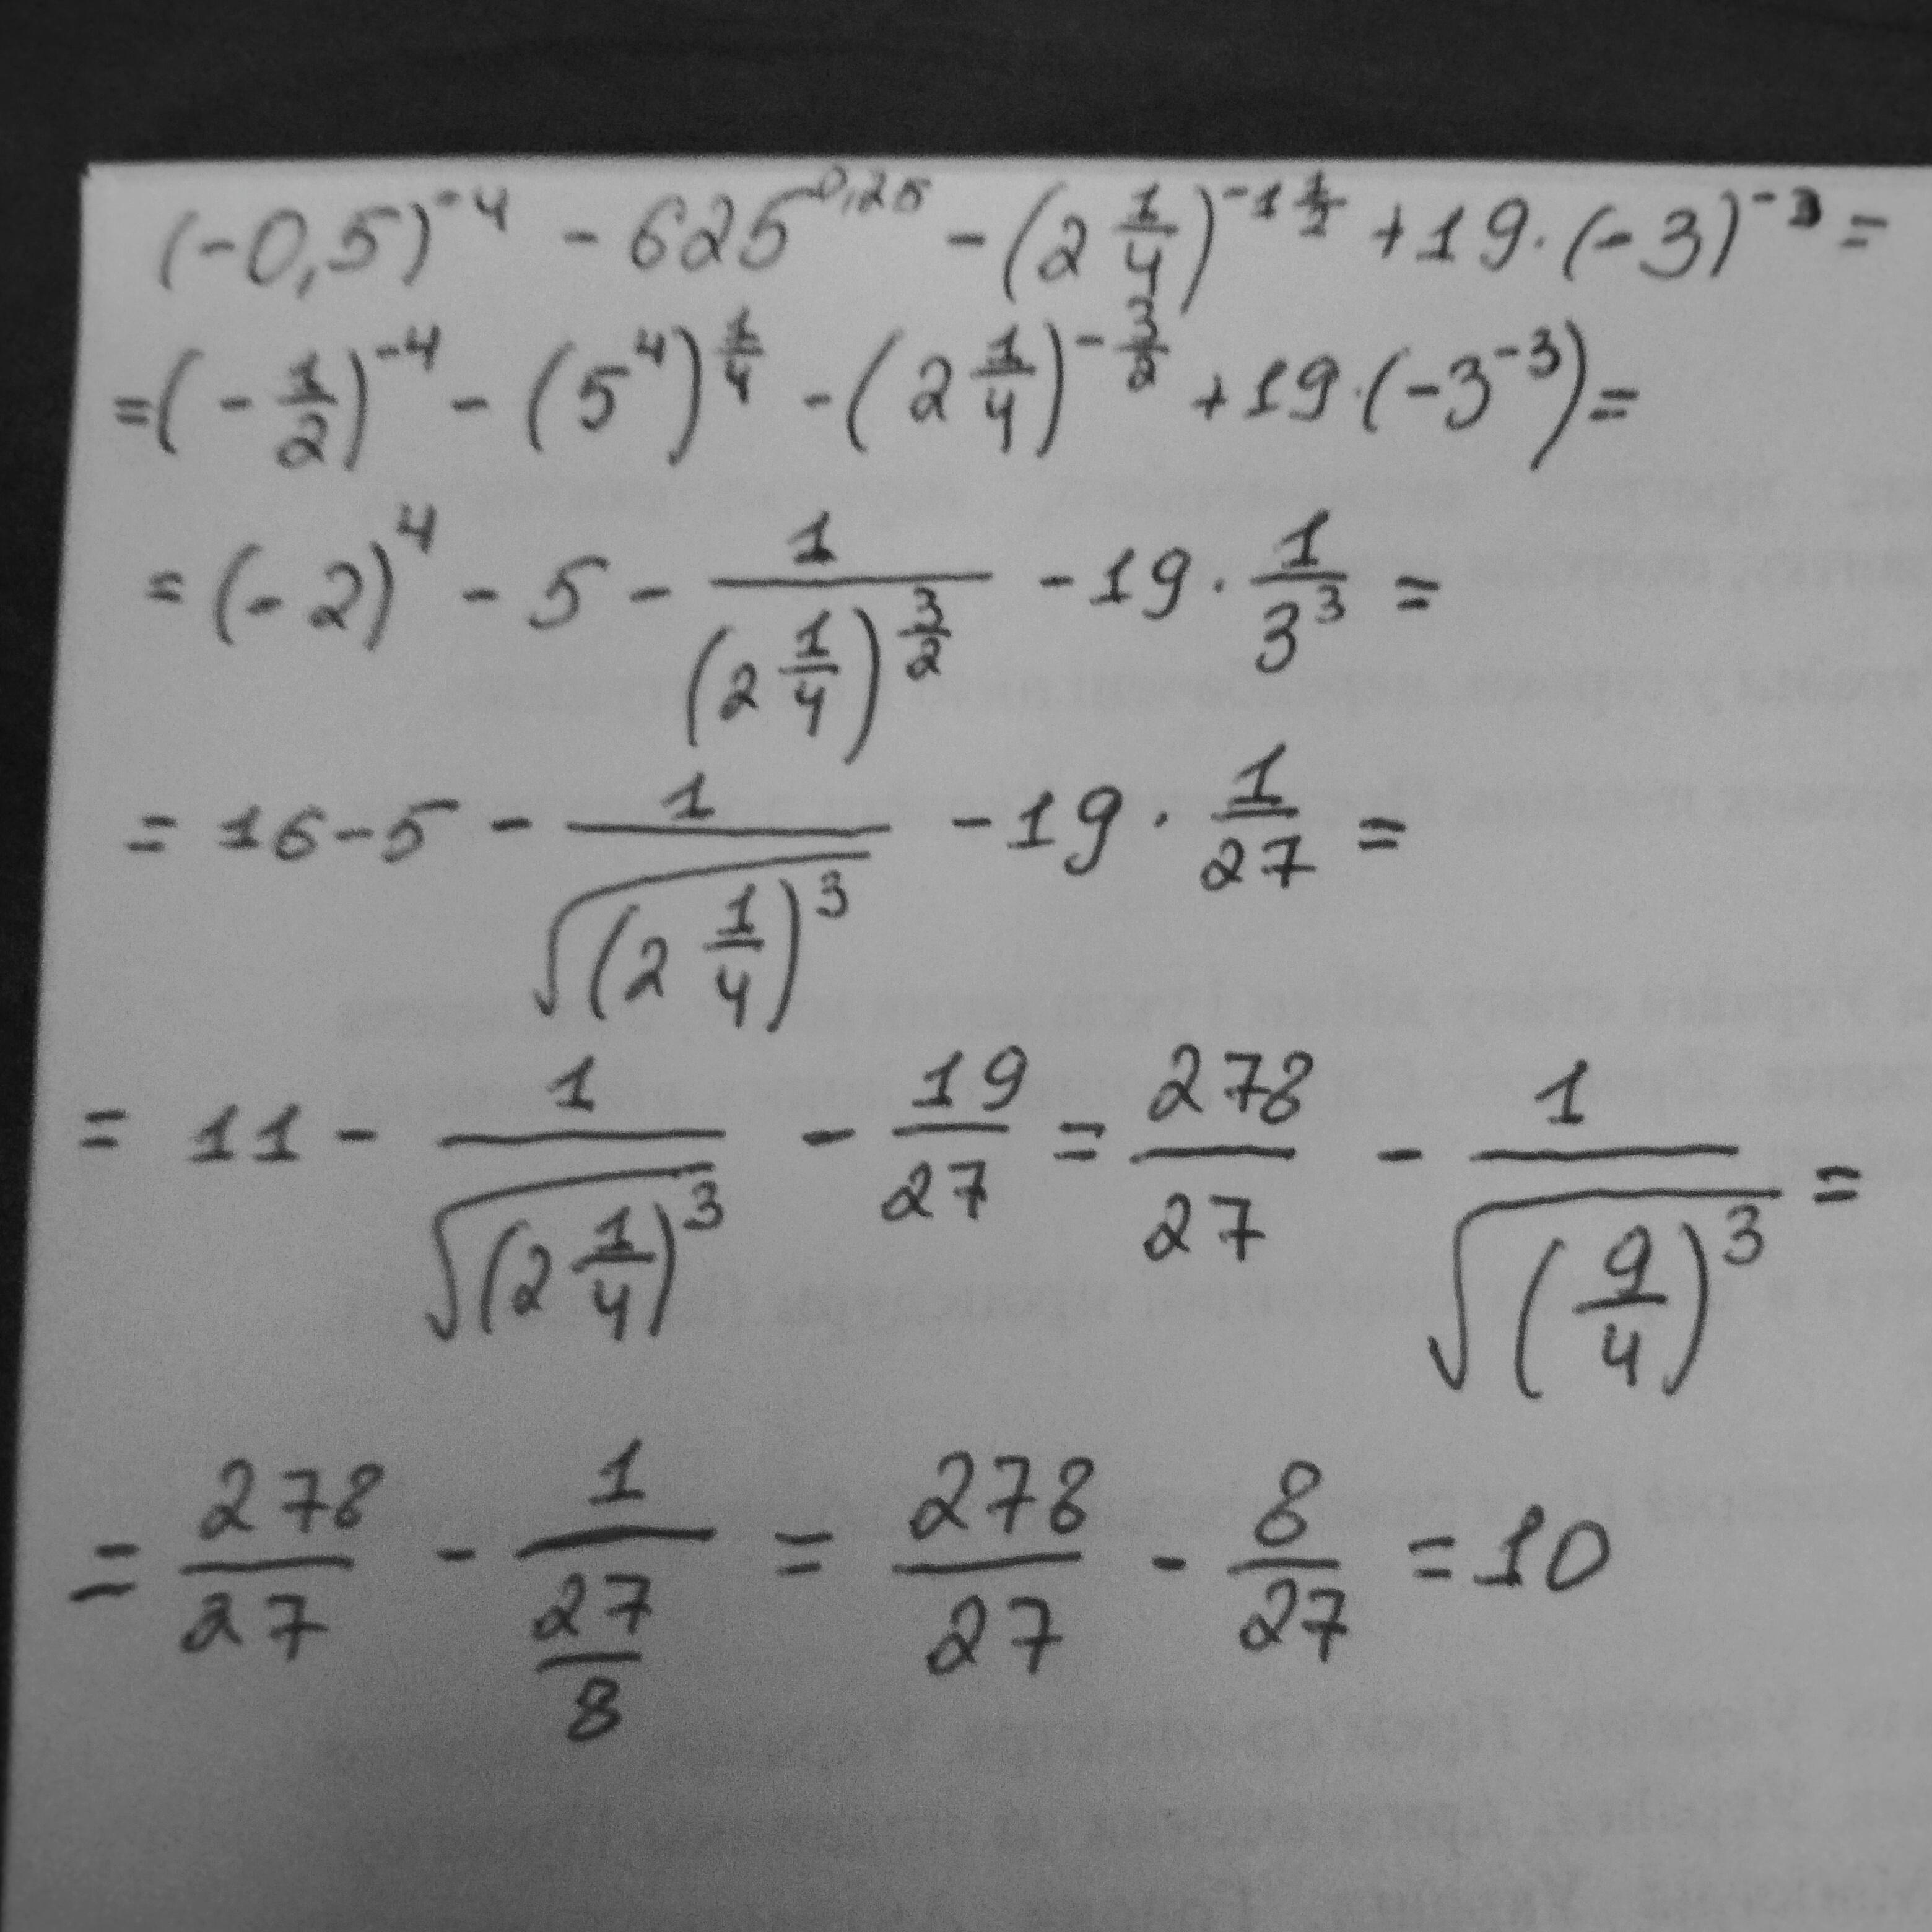 (-0,5)^{-4} - 625^{0,25} - (2\frac{1}{4})^{-1\frac{1}{2}} + 19 \cdot (-3)^{-3} =
= (-\frac{1}{2})^{-4} - (5^4)^{\frac{1}{4}} - (2\frac{1}{4})^{-\frac{3}{2}} + 19 \cdot (-3^{-3}) =
= (-2)^4 - 5 - \frac{1}{(2\frac{1}{4})^{\frac{3}{2}}} - 19 \cdot \frac{1}{3^3} =
= 16 - 5 - \frac{1}{\sqrt{(2\frac{1}{4})^3}} - 19 \cdot \frac{1}{27} =
= 11 - \frac{1}{\sqrt{(2\frac{1}{4})^3}} - \frac{19}{27} = \frac{278}{27} - \frac{1}{\sqrt{(\frac{9}{4})^3}} =
= \frac{278}{27} - \frac{1}{\frac{27}{8}} = \frac{278}{27} - \frac{8}{27} = 10